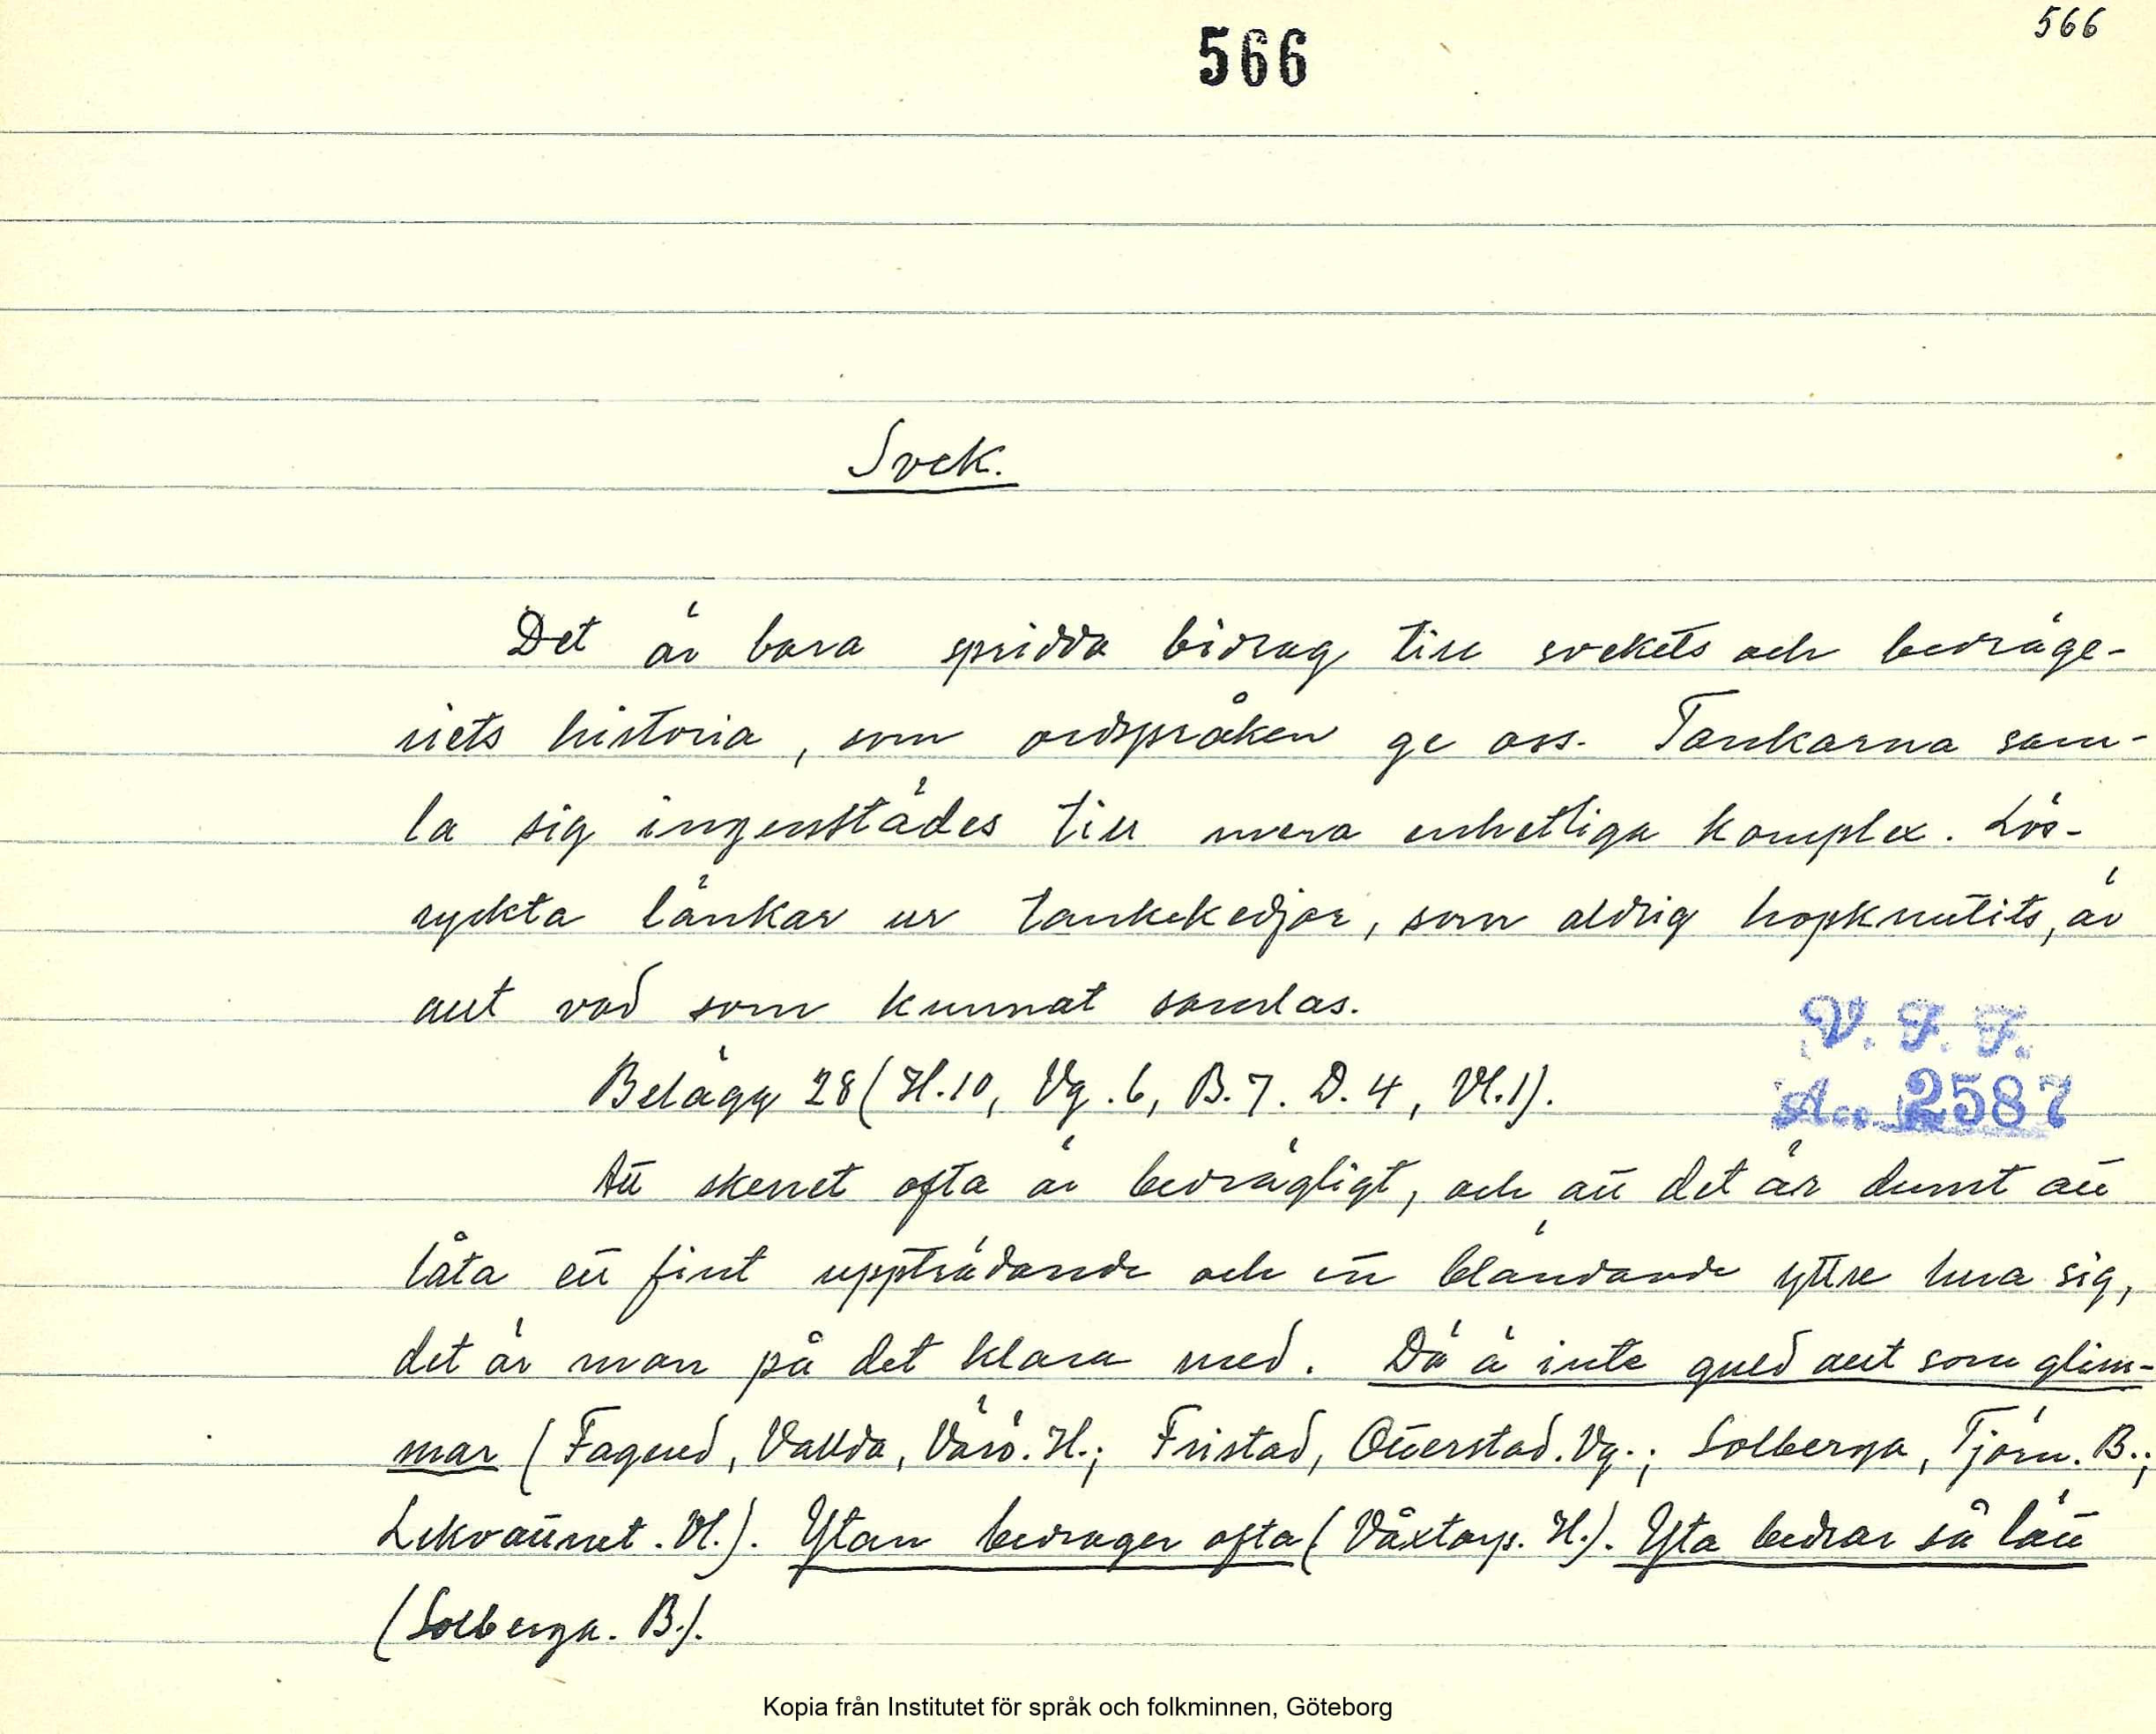 566
566
Svek.
Det är bara spridda bidrag till svekets och bedräge-
riets historia, som ordspråken ge oss. Tankarna sam-
la sig ingenstädes till mera enhetliga komplex. Lös-
ryckta länkar ur tankekedjor, som aldrig hopknutits, är
allt vad som kunnat samlas.
V. F. F.
Belägg 28 (H. 10, Vg. 6, B. 7. D. 4, Vl. 1).
Acc. 2587
Att skenet ofta är bedrägligt, och att det är dumt att
låta ett fint uppträdande och ett bländande yttre lura sig,
det är man på det klara med. Dä ä inte guld allt som glim-
mar (Fagered, Vallda, Värö. H.; Fristad, Otterstad. Vg.; Solberga, Tjörn. B.;
Lekvattnet. Vl.). Ytan bedrager ofta (Våxtorp. H.). Yta bedrar så lätt
(Solberga. B.).
Kopia från Institutet för språk och folkminnen, Göteborg